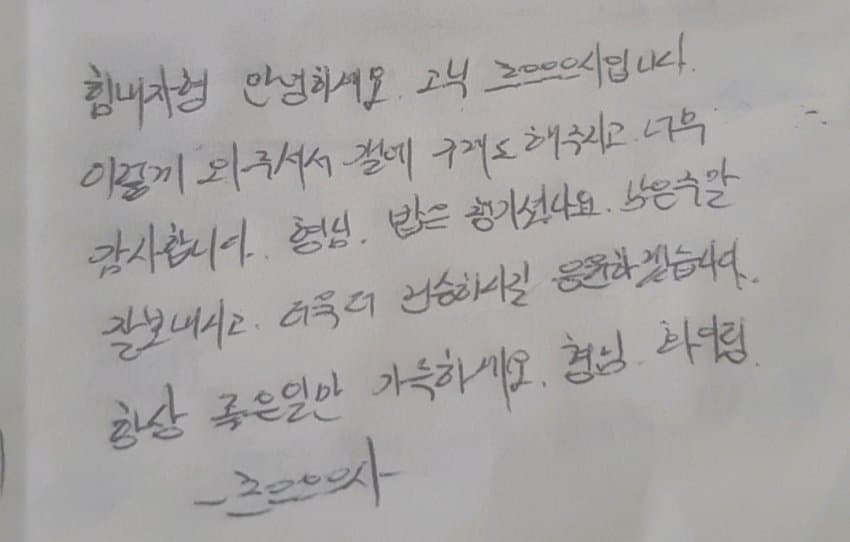 힘내자형 안녕하세요. 고닉 ㅋ000시입니다.
이렇게 와주셔서 결에 구개도 해주시고. 너무
감사합니다. 형님. 밥은 챙기셨나요. 남은주말
잘보내시고. 더욱더 건승하시길 응원하겠습니다.
항상 좋은일만 가득하세요. 형님. 화이팅.